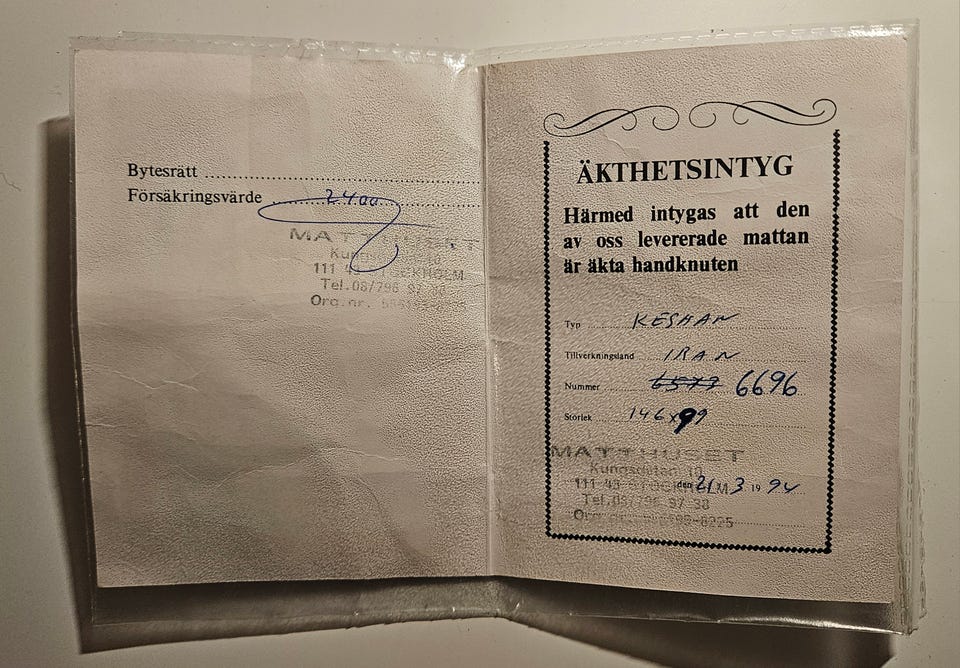 Bytesrätt
Försäkringsvärde 2400
MATTHUSET
111 4 STOCKHOLM
Tel.08/796 97 38
Org.nr.
ÄKTHETSINTYG
Härmed intygas att den
av oss levererade mattan
är äkta handknuten
Typ KESHAN
Tillverkningsland IRAN
Nummer 6579 6696
Storlek 146x99
MATTHUSET
Kungsgatan 10
111 43 STOCKHOLM
den 21 3 1994
Tel.08/796 97 38
Org.nr.